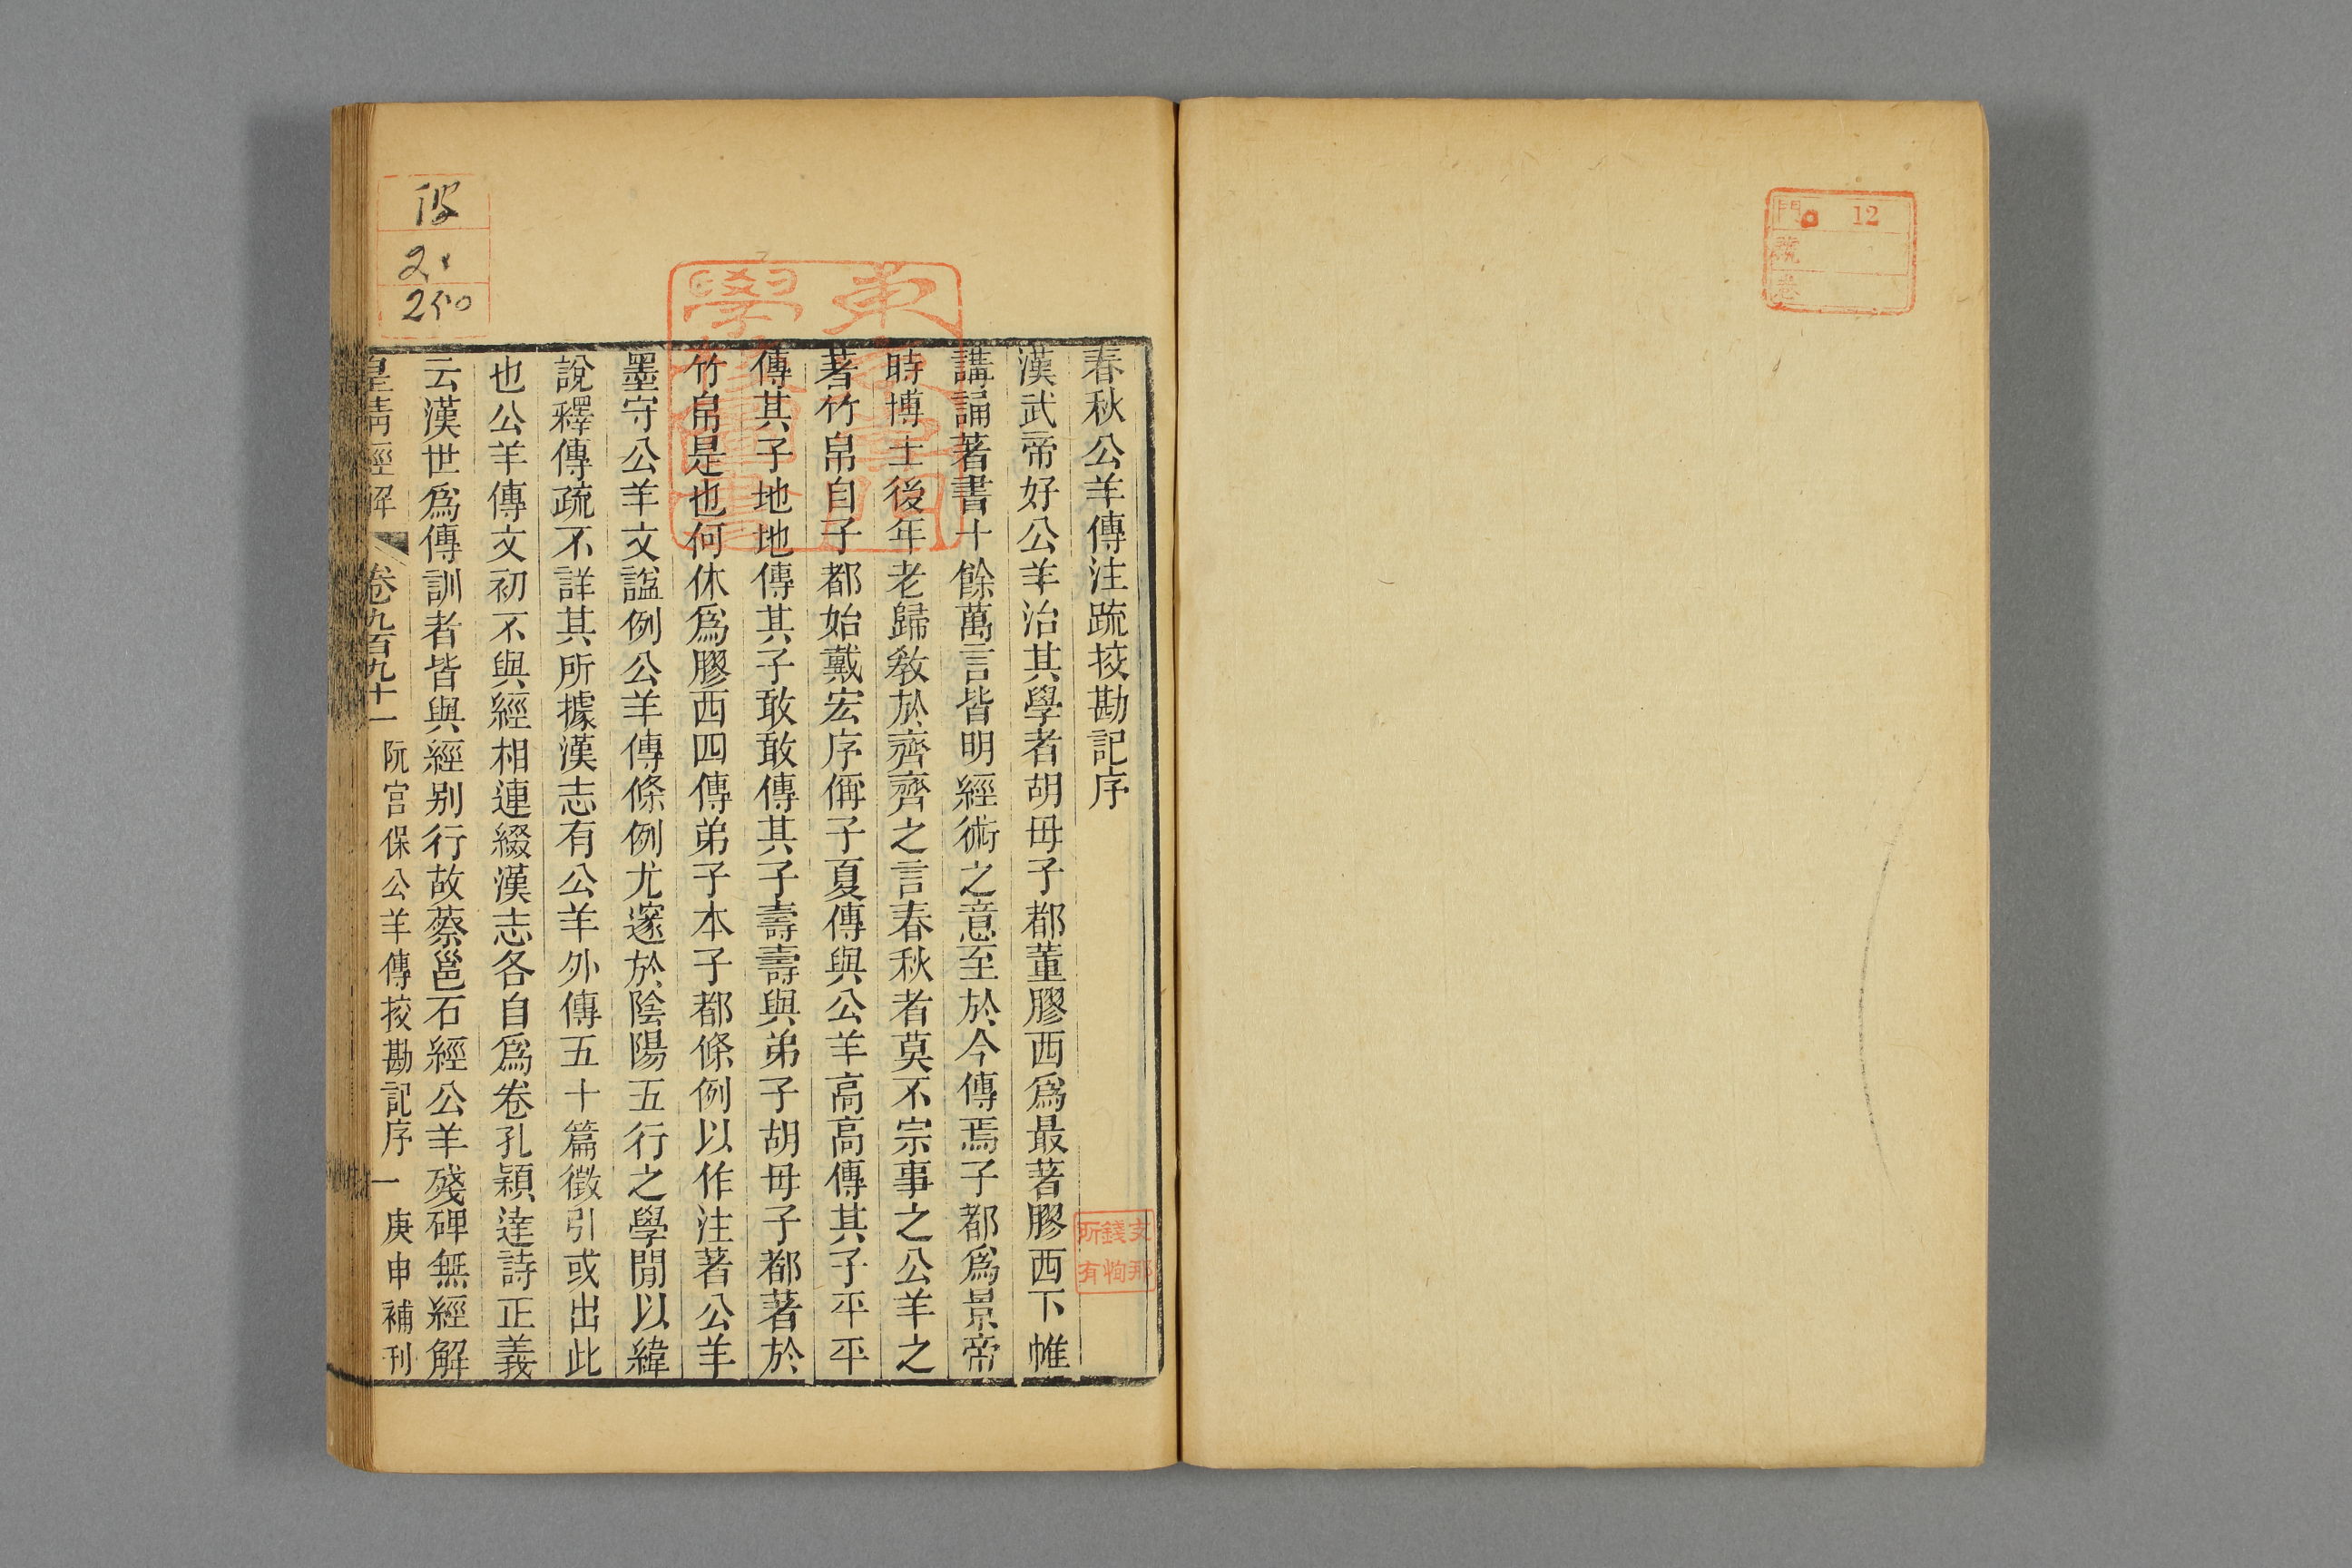 門 12
號
春秋公羊傳注疏挍勘記序
漢武帝好公羊治其學者胡毋子都董膠西爲最著膠西下帷
講誦著書十餘萬言皆明經術之意至於今傳焉子都爲景帝
時博士後年老歸敎於齊齊之言春秋者莫不宗事之公羊之
著竹帛自子都始戴宏序偁子夏傳與公羊高高傳其子平平
傳其子地地傳其子敢敢傳其子壽壽與弟子胡毋子都著於
竹帛是也何休爲膠西四傳弟子本子都條例以作注著公羊
墨守公羊文諡例公羊傳條例尤邃於陰陽五行之學閒以緯
說釋傳疏不詳其所據漢志有公羊外傳五十篇徵引或出此
也公羊傳文初不與經相連綴漢志各自爲卷孔穎達詩正義
云漢世爲傳訓者皆與經别行故蔡邕石經公羊殘碑無經解
皇淸經解 卷九百九十一 阮宫保公羊傳挍勘記序 一 庚申補刊
支那
錢恂
所有
2
250